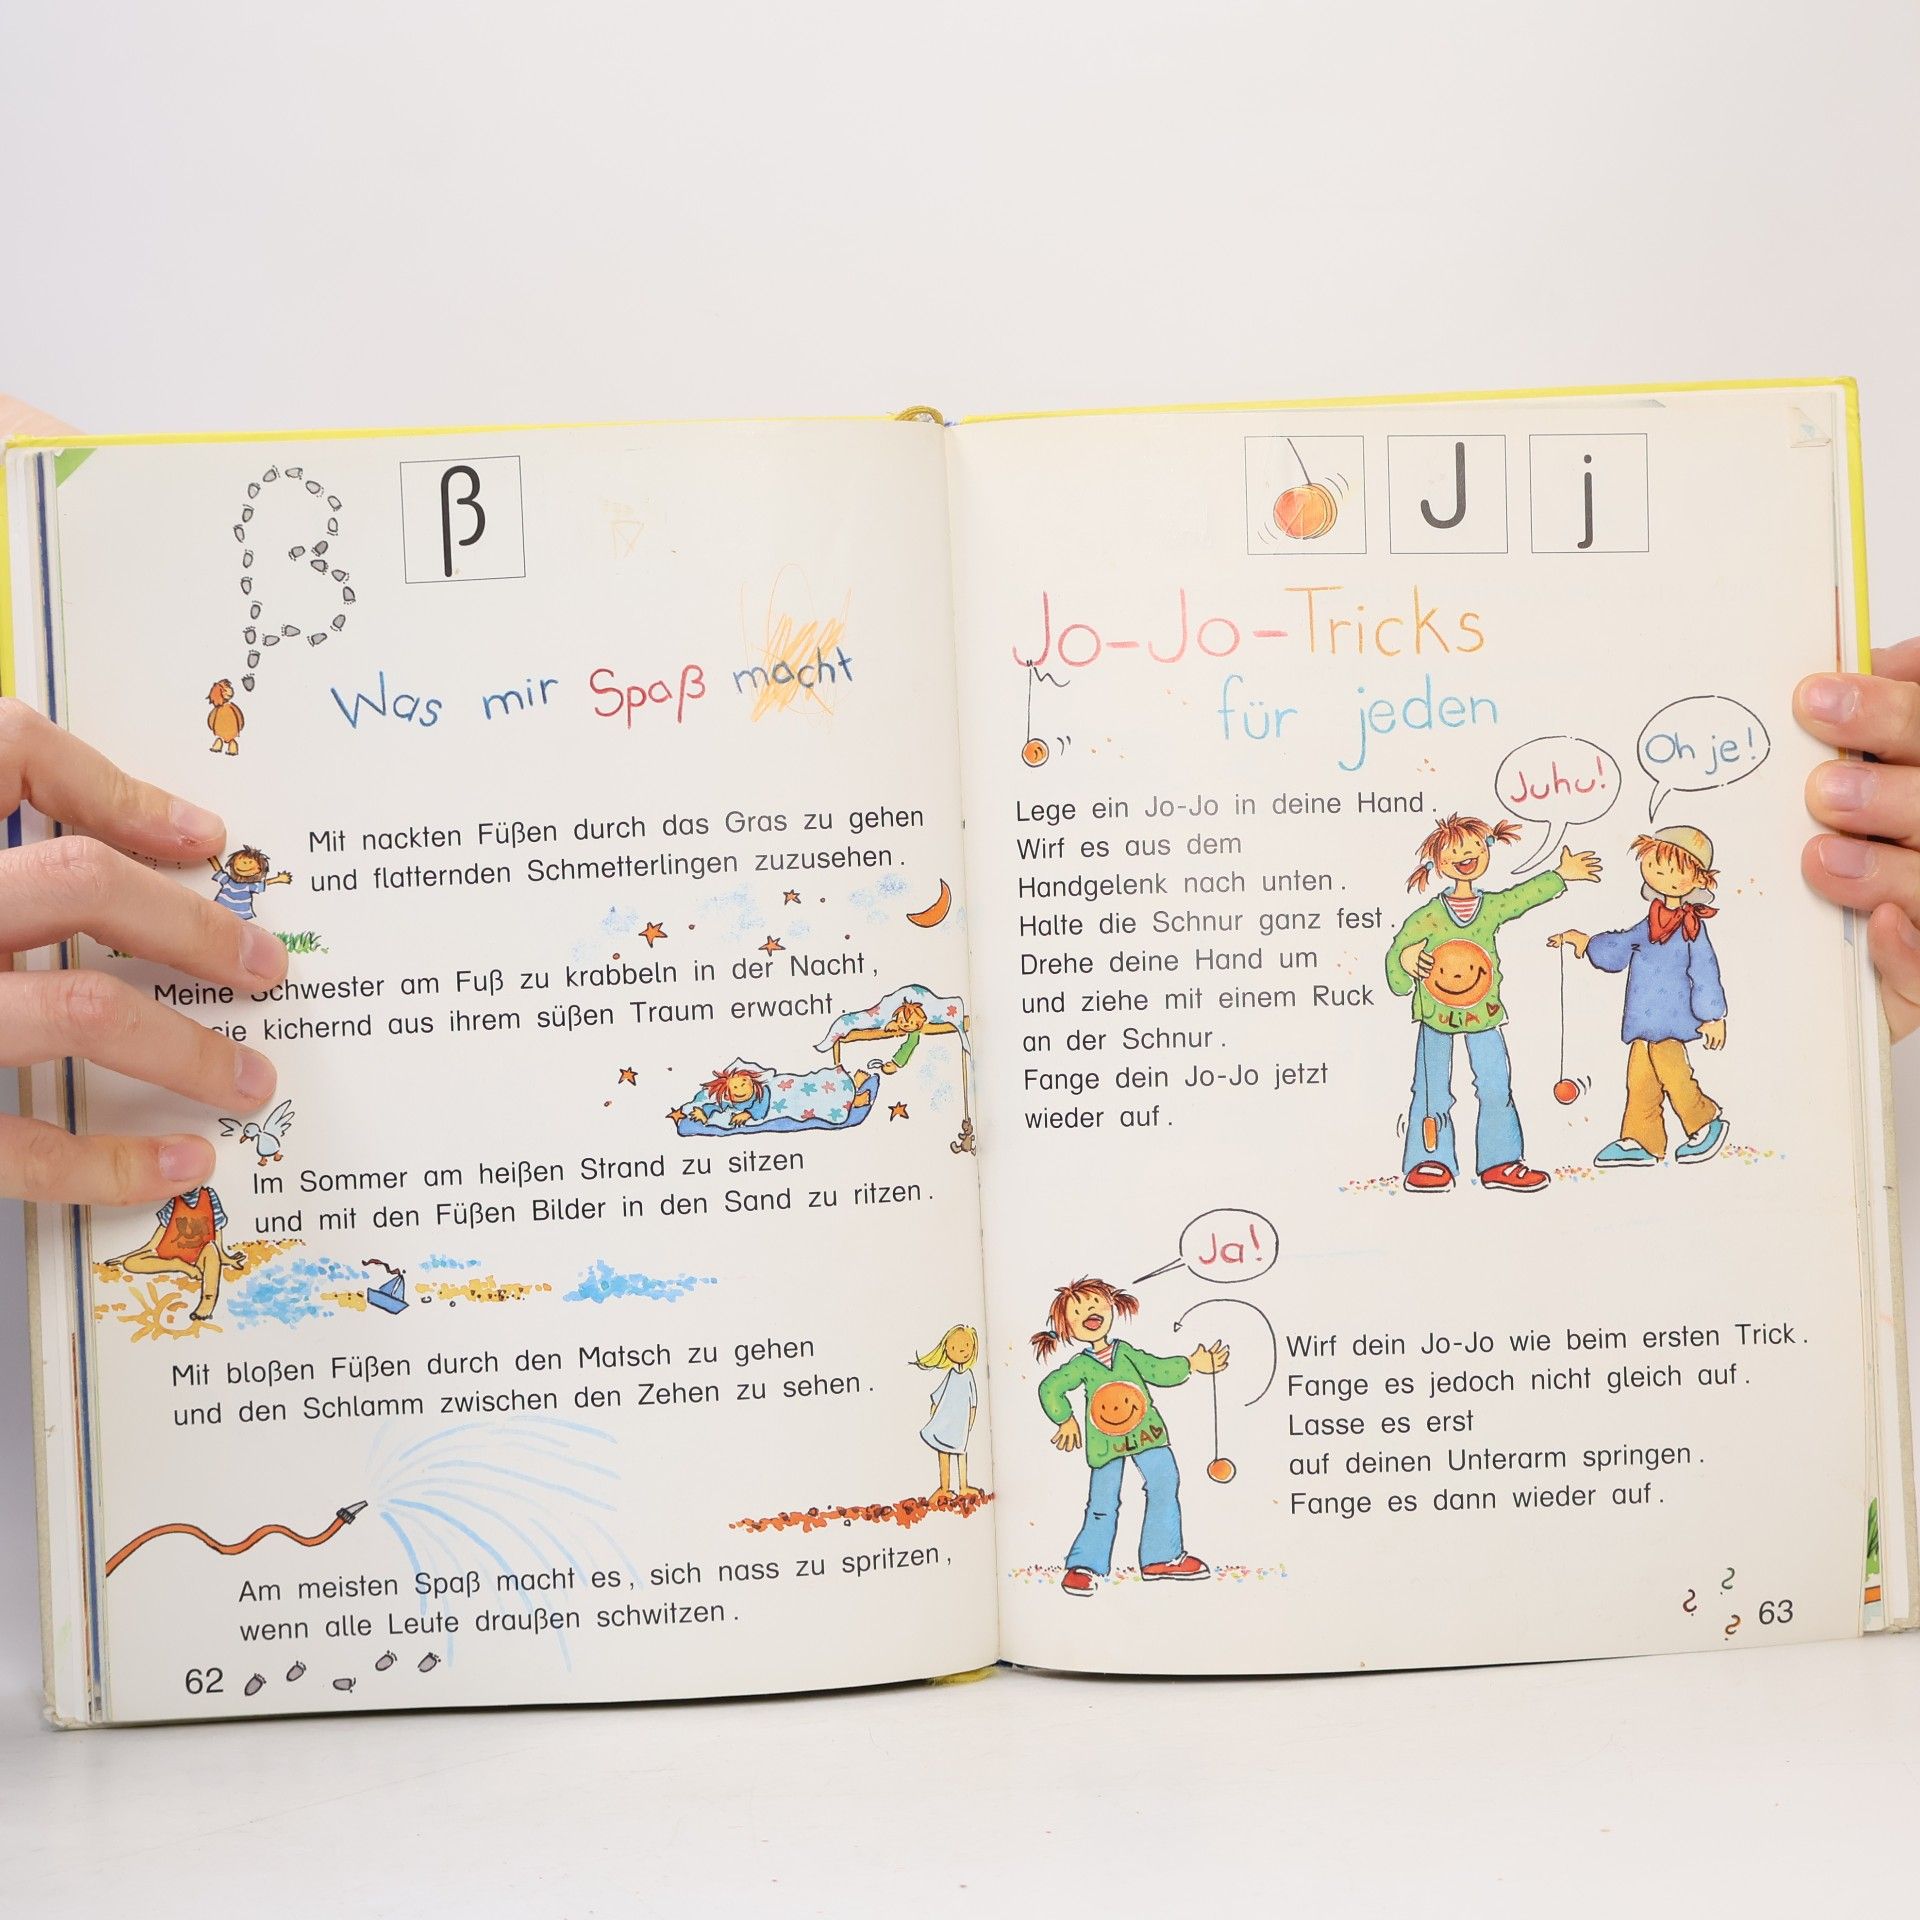 ß
Was mir Spaß macht
Mit nackten Füßen durch das Gras zu gehen
und flatternden Schmetterlingen zuzusehen.
Meine Schwester am Fuß zu krabbeln in der Nacht,
sie kichernd aus ihrem süßen Traum erwacht.
Im Sommer am heißen Strand zu sitzen
und mit den Füßen Bilder in den Sand zu ritzen.
Mit bloßen Füßen durch den Matsch zu gehen
und den Schlamm zwischen den Zehen zu sehen.
Am meisten Spaß macht es, sich nass zu spritzen,
wenn alle Leute draußen schwitzen.
62
J j
Jo-Jo-Tricks
für jeden
Juhu!
Oh je!
Lege ein Jo-Jo in deine Hand.
Wirf es aus dem
Handgelenk nach unten.
Halte die Schnur ganz fest.
Drehe deine Hand um
und ziehe mit einem Ruck
an der Schnur.
Fange dein Jo-Jo jetzt
wieder auf.
JULIA
Ja!
JULIA
Wirf dein Jo-Jo wie beim ersten Trick.
Fange es jedoch nicht gleich auf.
Lasse es erst
auf deinen Unterarm springen.
Fange es dann wieder auf.
63